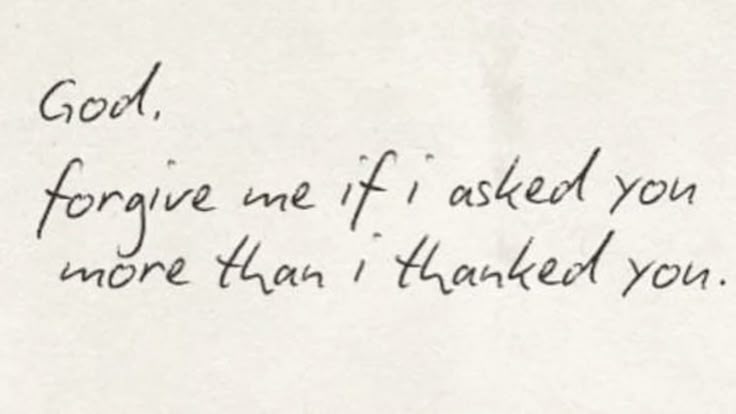 God,
forgive me if i asked you
more than i thanked you.